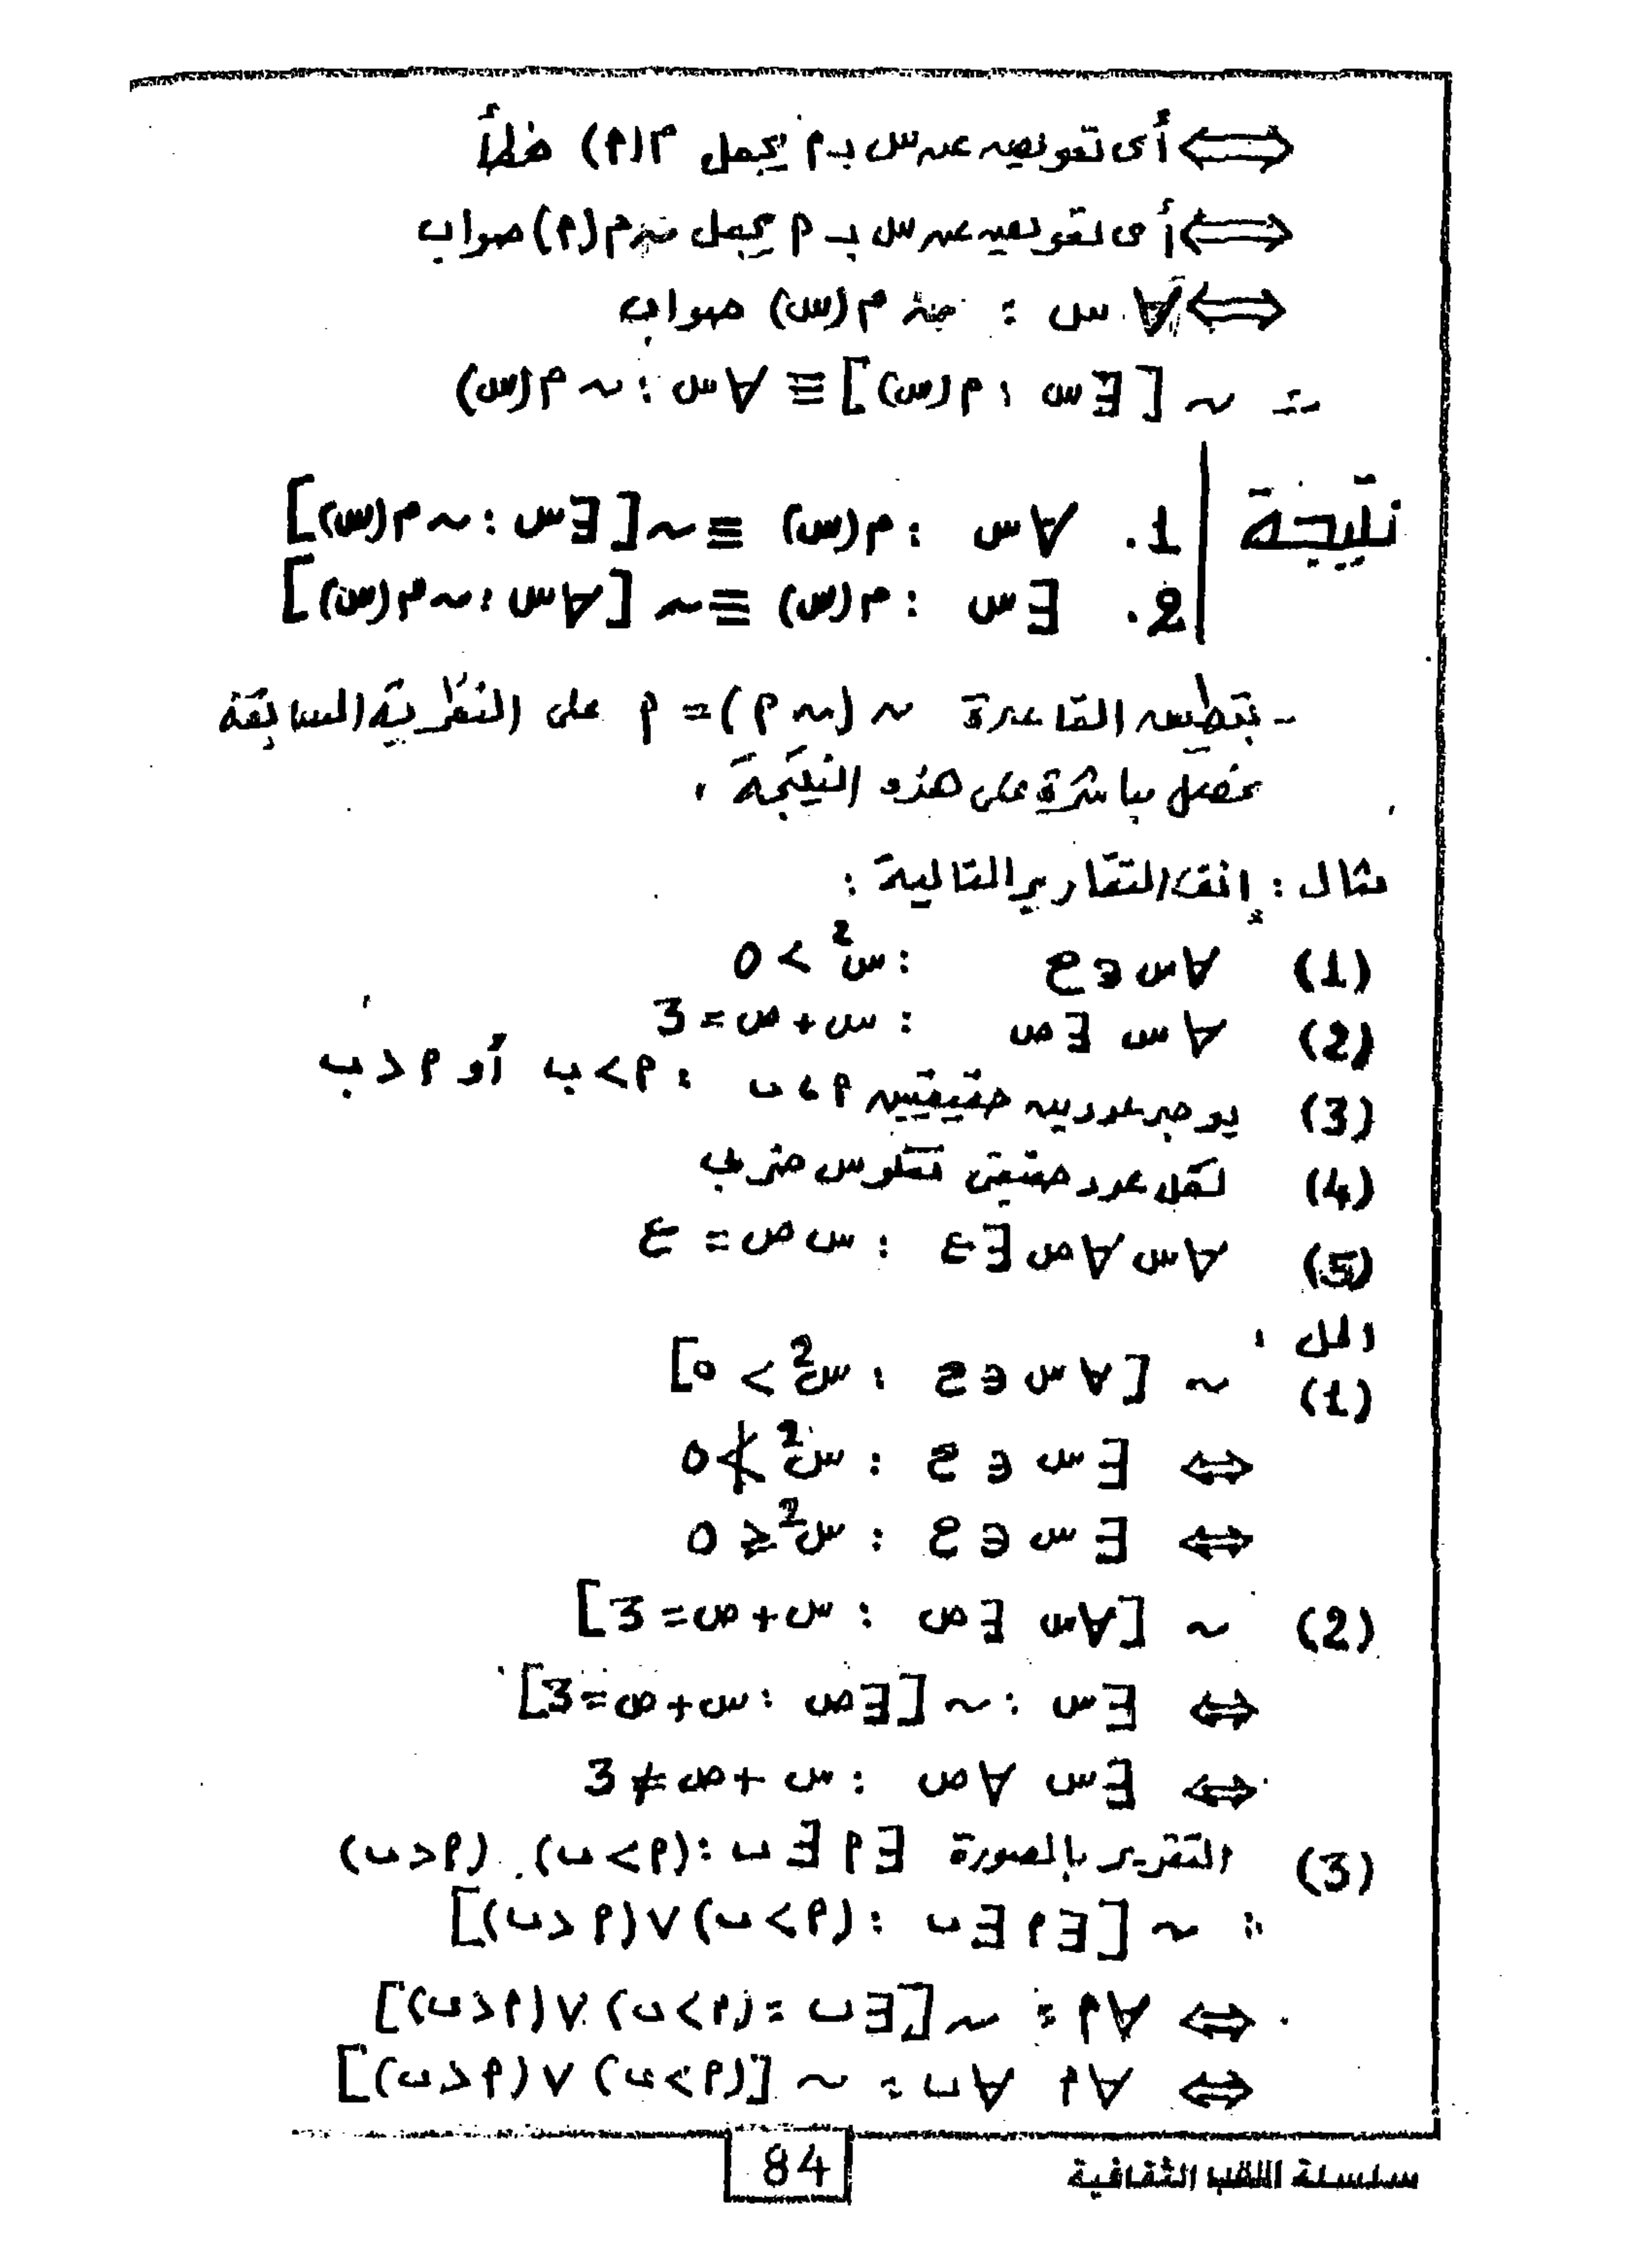 ⟺ أى تعويض عن س بـ م يجعل م(م) خطأ
⟺ أى تعويض عن س بـ م يجعل ~م(م) صواب
⟺ ∀ س : ~م(س) صواب
∴ ~ [∃س : م(س)] ≡ ∀س : ~م(س)
نتيجة
1. ∀س : م(س) ≡ ~[∃س : ~م(س)]
2. ∃س : م(س) ≡ ~[∀س : ~م(س)]
- بتطبيق القاعدة ~(~م) = م على النظرية السابقة
نحصل مباشرة على هذه النتيجة .
مثال : إنف التقارير التالية :
(1) ∀س ∈ ح : س² > 0
(2) ∀س ∃ص : س + ص = 3
(3) يوجد عددين حقيقيين م ، ب : م > ب أو م < ب
(4) لكل عدد حقيقى معكوس ضربى
(5) ∀س ∀ص ∃ع : س ص = ع
الحل :
(1) ~ [∀س ∈ ح : س² > 0]
⟺ ∃س ∈ ح : س² ≯ 0
⟺ ∃س ∈ ح : س² ≤ 0
(2) ~ [∀س ∃ص : س + ص = 3]
⟺ ∃س : ~ [∃ص : س + ص = 3]
⟺ ∃س ∀ص : س + ص ≠ 3
(3) التقرير بالصورة ∃م ∃ب : (م > ب) (م < ب)
∴ ~ [∃م ∃ب : (م > ب) ∨ (م < ب)]
⟺ ∀م : ~ [∃ب : (م > ب) ∨ (م < ب)]
⟺ ∀م ∀ب : ~ [(م > ب) ∨ (م < ب)]
84
سلسلة اللقب الثقافية